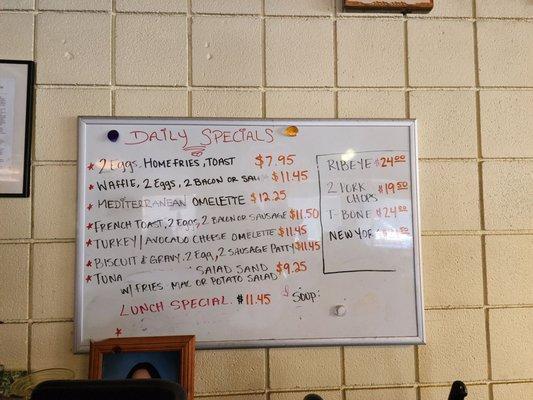 DAILY SPECIALS
2 Eggs, HOMEFRIES, TOAST $7.95
WAFFLE, 2 EGGS, 2 BACON OR $11.45
MEDITERRANEAN OMELETTE $12.25
FRENCH TOAST, 2 Eggs, 2 BACON OR SAUSAGE $11.50
TURKEY/AVOCADO CHEESE OMELETTE $11.45
BISCUIT & GRAVY. 2 Egg, 2 SAUSAGE PATTY $11.45
TUNA SALAD SAND $9.25
W/ FRIES MAC OR POTATO SALAD
LUNCH SPECIAL. $11.45
SOUP:
RIBEYE $24.00
2 PORK CHOPS $19.50
T-BONE $24.00
NEW YORK